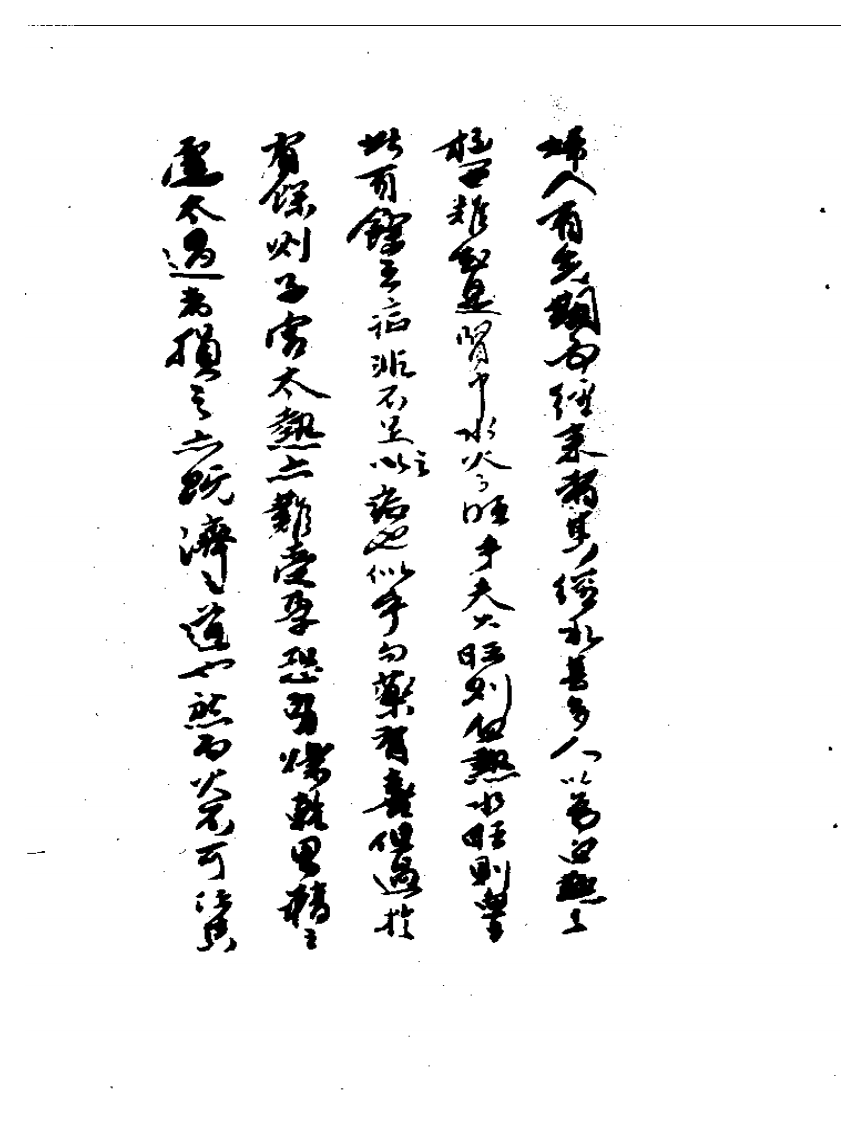 婦人有先期而經來者其經水甚多人以為血熱之
極也誰知是腎中水火旺乎夫火旺則血熱水旺則
此有餘之病非不足之病也似乎勿藥有喜但過於
有餘則子宮太熱亦難受孕恐有爍乾男精之
慮太過者損之亦既濟之道也然而火不可任其